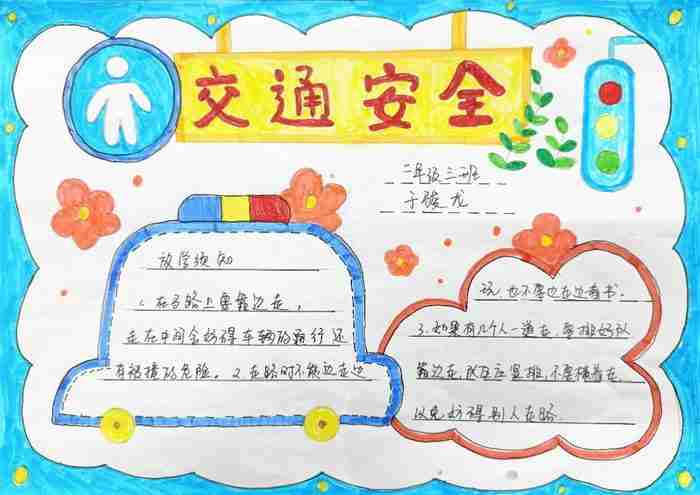 交通安全
二年级三班
于俊龙
放学须知
1、在马路上要靠边走,
走在中间会妨碍车辆的通行还
有被撞的危险。2、在路时不能边走边
玩,也不要边走边看书。
3、如果有几个人一道走,要排好队
靠边走,应竖排,不要横着走
以免妨碍别人走路.